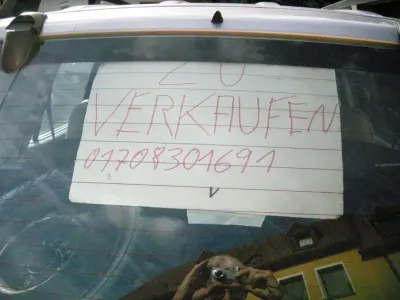 ZU
VERKAUFEN
01708301691